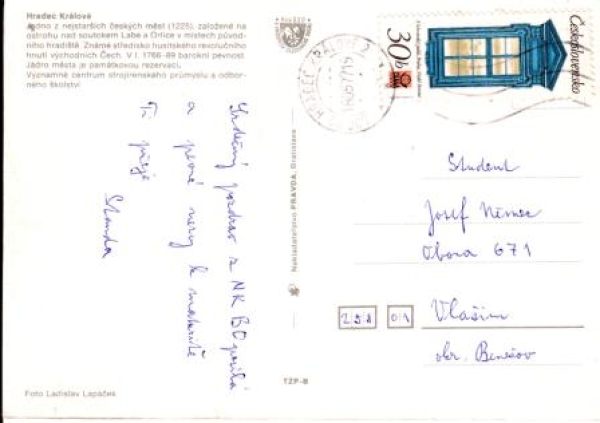 Hradec Králové
Jedno z nejstarších českých měst (1225), založené na
ostrohu nad soutokem Labe a Orlice v místech původ-
ního hradiště. Známé středisko husitského revolučního
hnutí východních Čech. V l. 1766-89 barokní pevnost.
Jádro města je památkovou rezervací.
Významné centrum strojírenského průmyslu a odbor-
ného školství
Srdečný pozdrav z NK BO posílá
a pevné nervy k maturitě
Ti přeje
Standa
Foto Ladislav Lapáček
Nakladatelstvo PRAVDA, Bratislava
TZP-B
HRADEC KRÁLOVÉ 2
30h
Československo
Student
Josef Němec
Obora 671
258 01
Vlašim
okr. Benešov